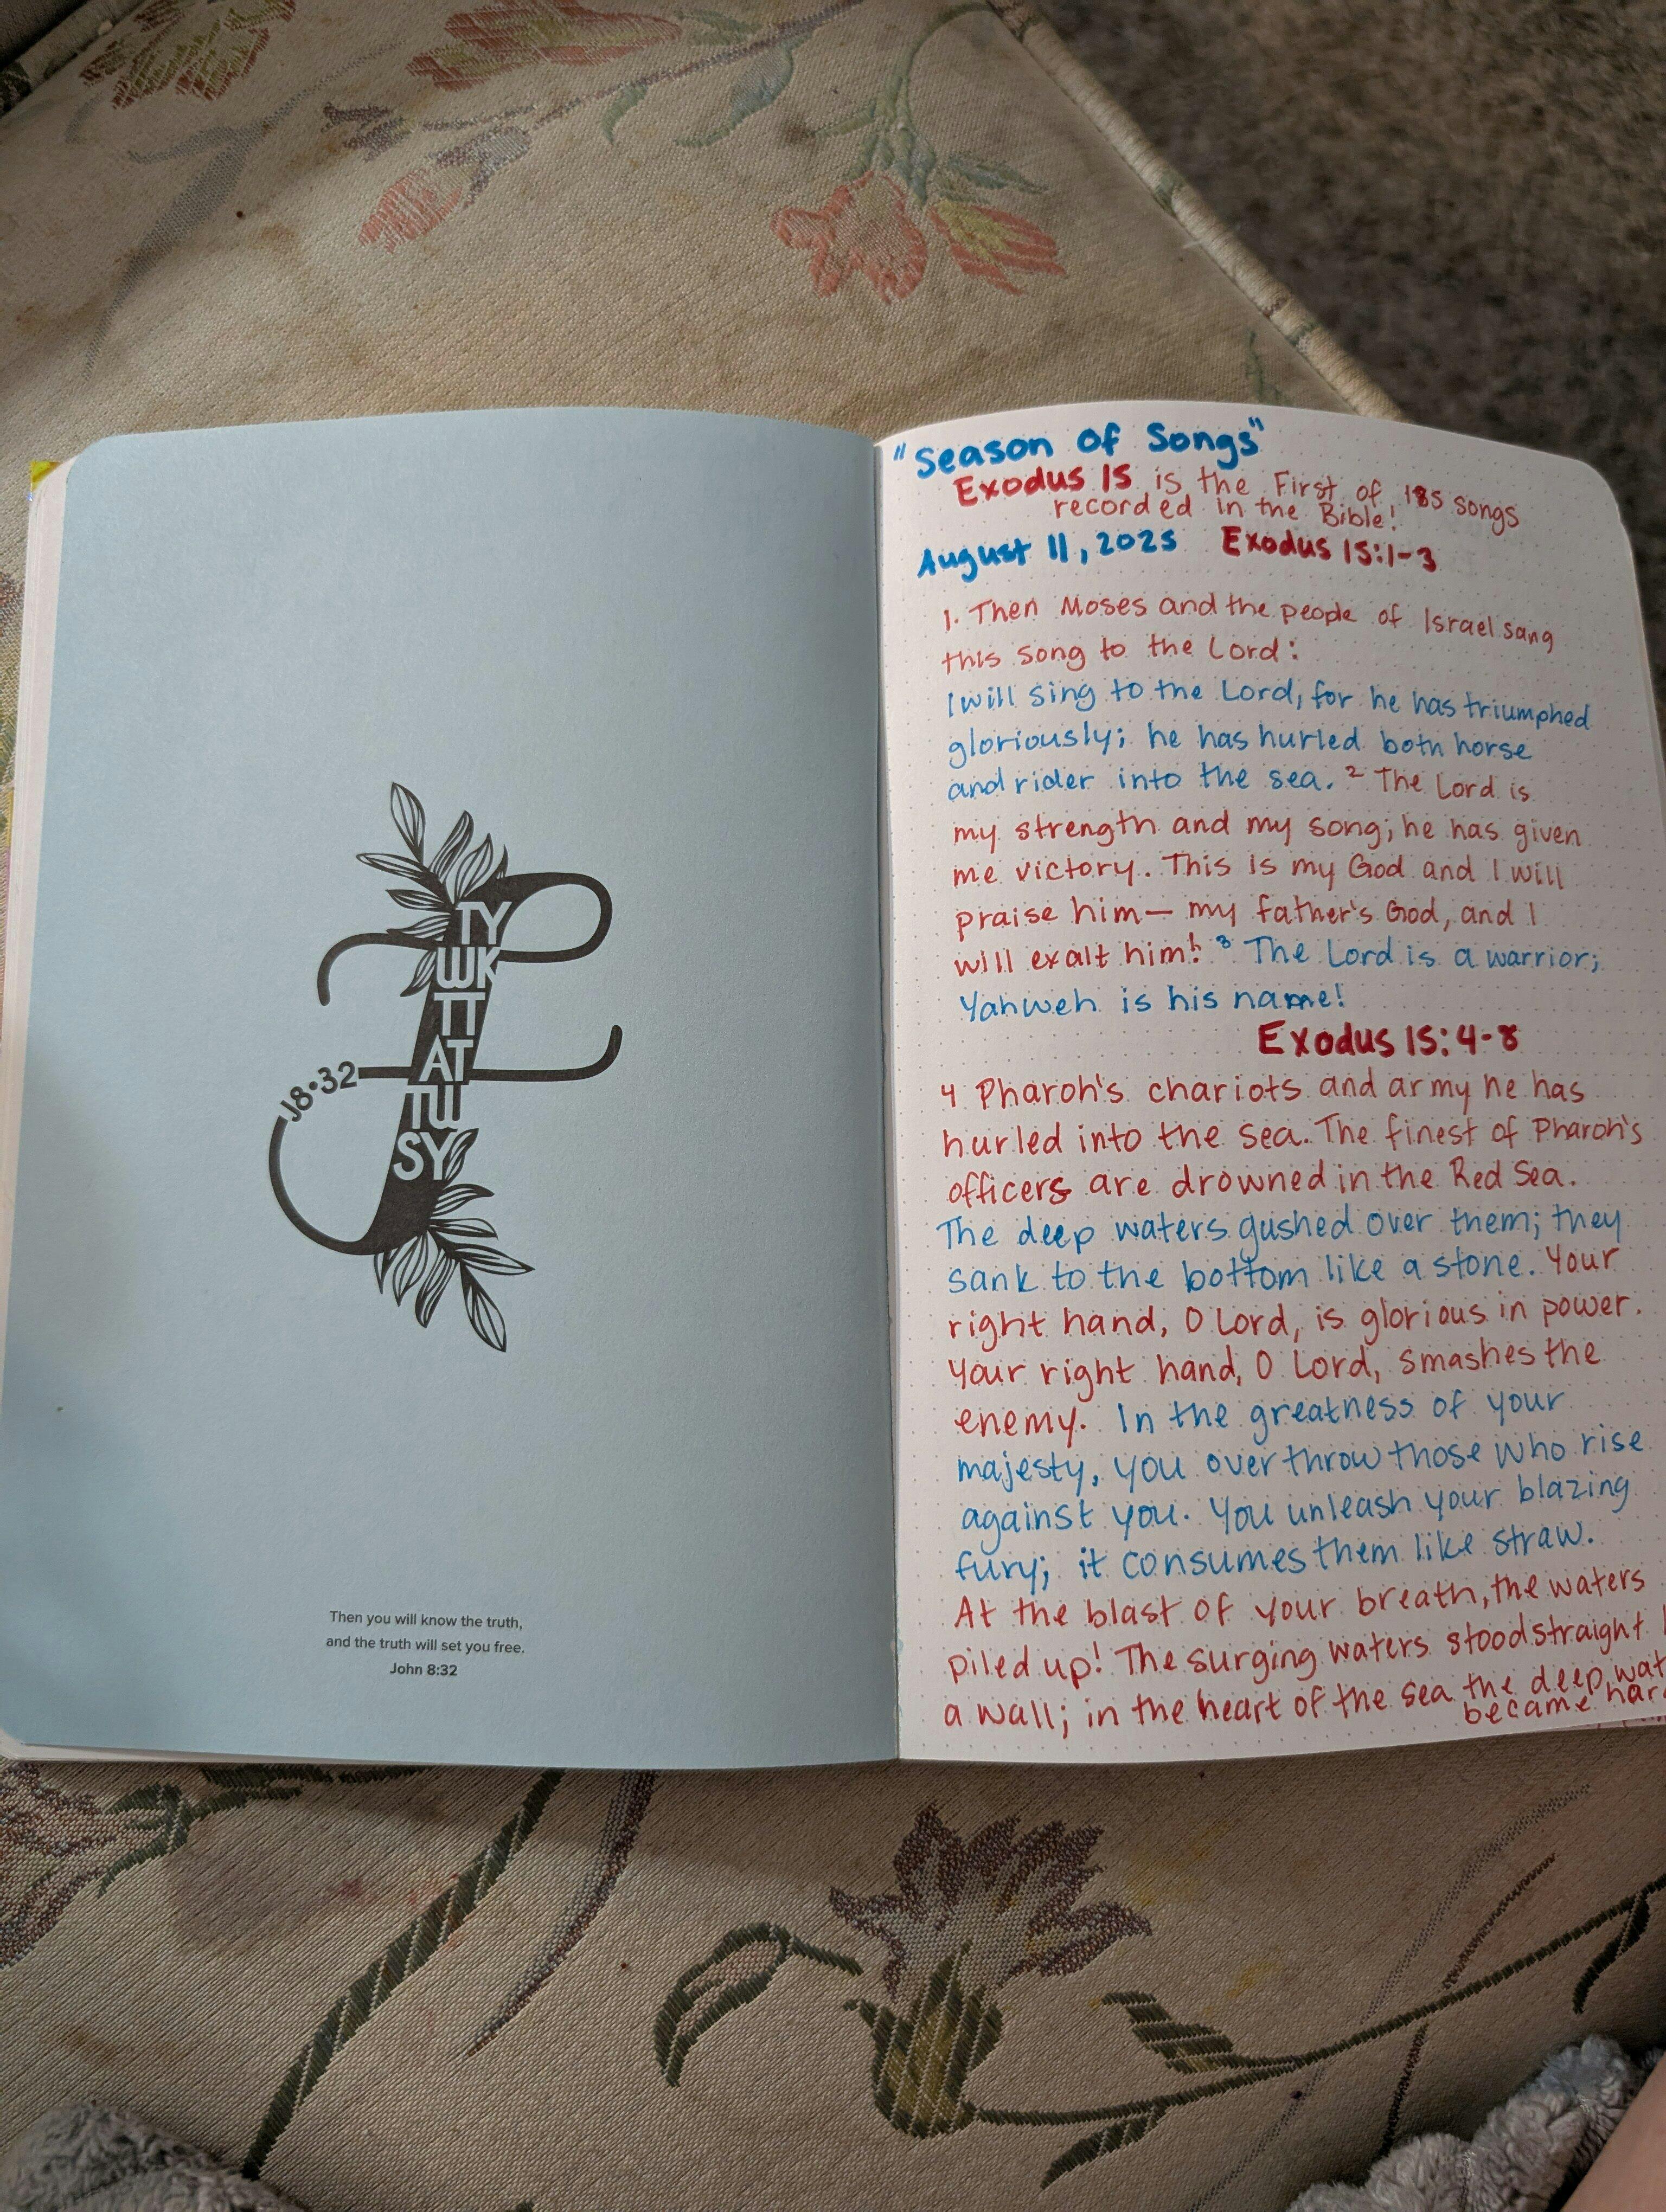 TY
WK
TT
AT
TW
SY
J8•32
Then you will know the truth,
and the truth will set you free.
John 8:32
"Season of Songs"
Exodus 15 is the First of 185 songs
recorded in the Bible!
August 11, 2025 Exodus 15:1-3
1. Then Moses and the people of Israel sang
this song to the Lord:
I will sing to the Lord, for he has triumphed
gloriously; he has hurled both horse
and rider into the sea. 2 The Lord is
my strength and my song; he has given
me victory. This is my God and I will
praise him— my father's God, and I
will exalt him! 3 The Lord is a warrior;
Yahweh is his name!
Exodus 15:4-8
4 Pharoh's chariots and army he has
hurled into the sea. The finest of Pharoh's
officers are drowned in the Red Sea.
The deep waters gushed over them; they
sank to the bottom like a stone. Your
right hand, O Lord, is glorious in power.
Your right hand, O Lord, smashes the
enemy. In the greatness of your
majesty, you overthrow those who rise
against you. You unleash your blazing
fury; it consumes them like straw.
At the blast of your breath, the waters
piled up! The surging waters stood straight
a wall; in the heart of the sea the deep
became